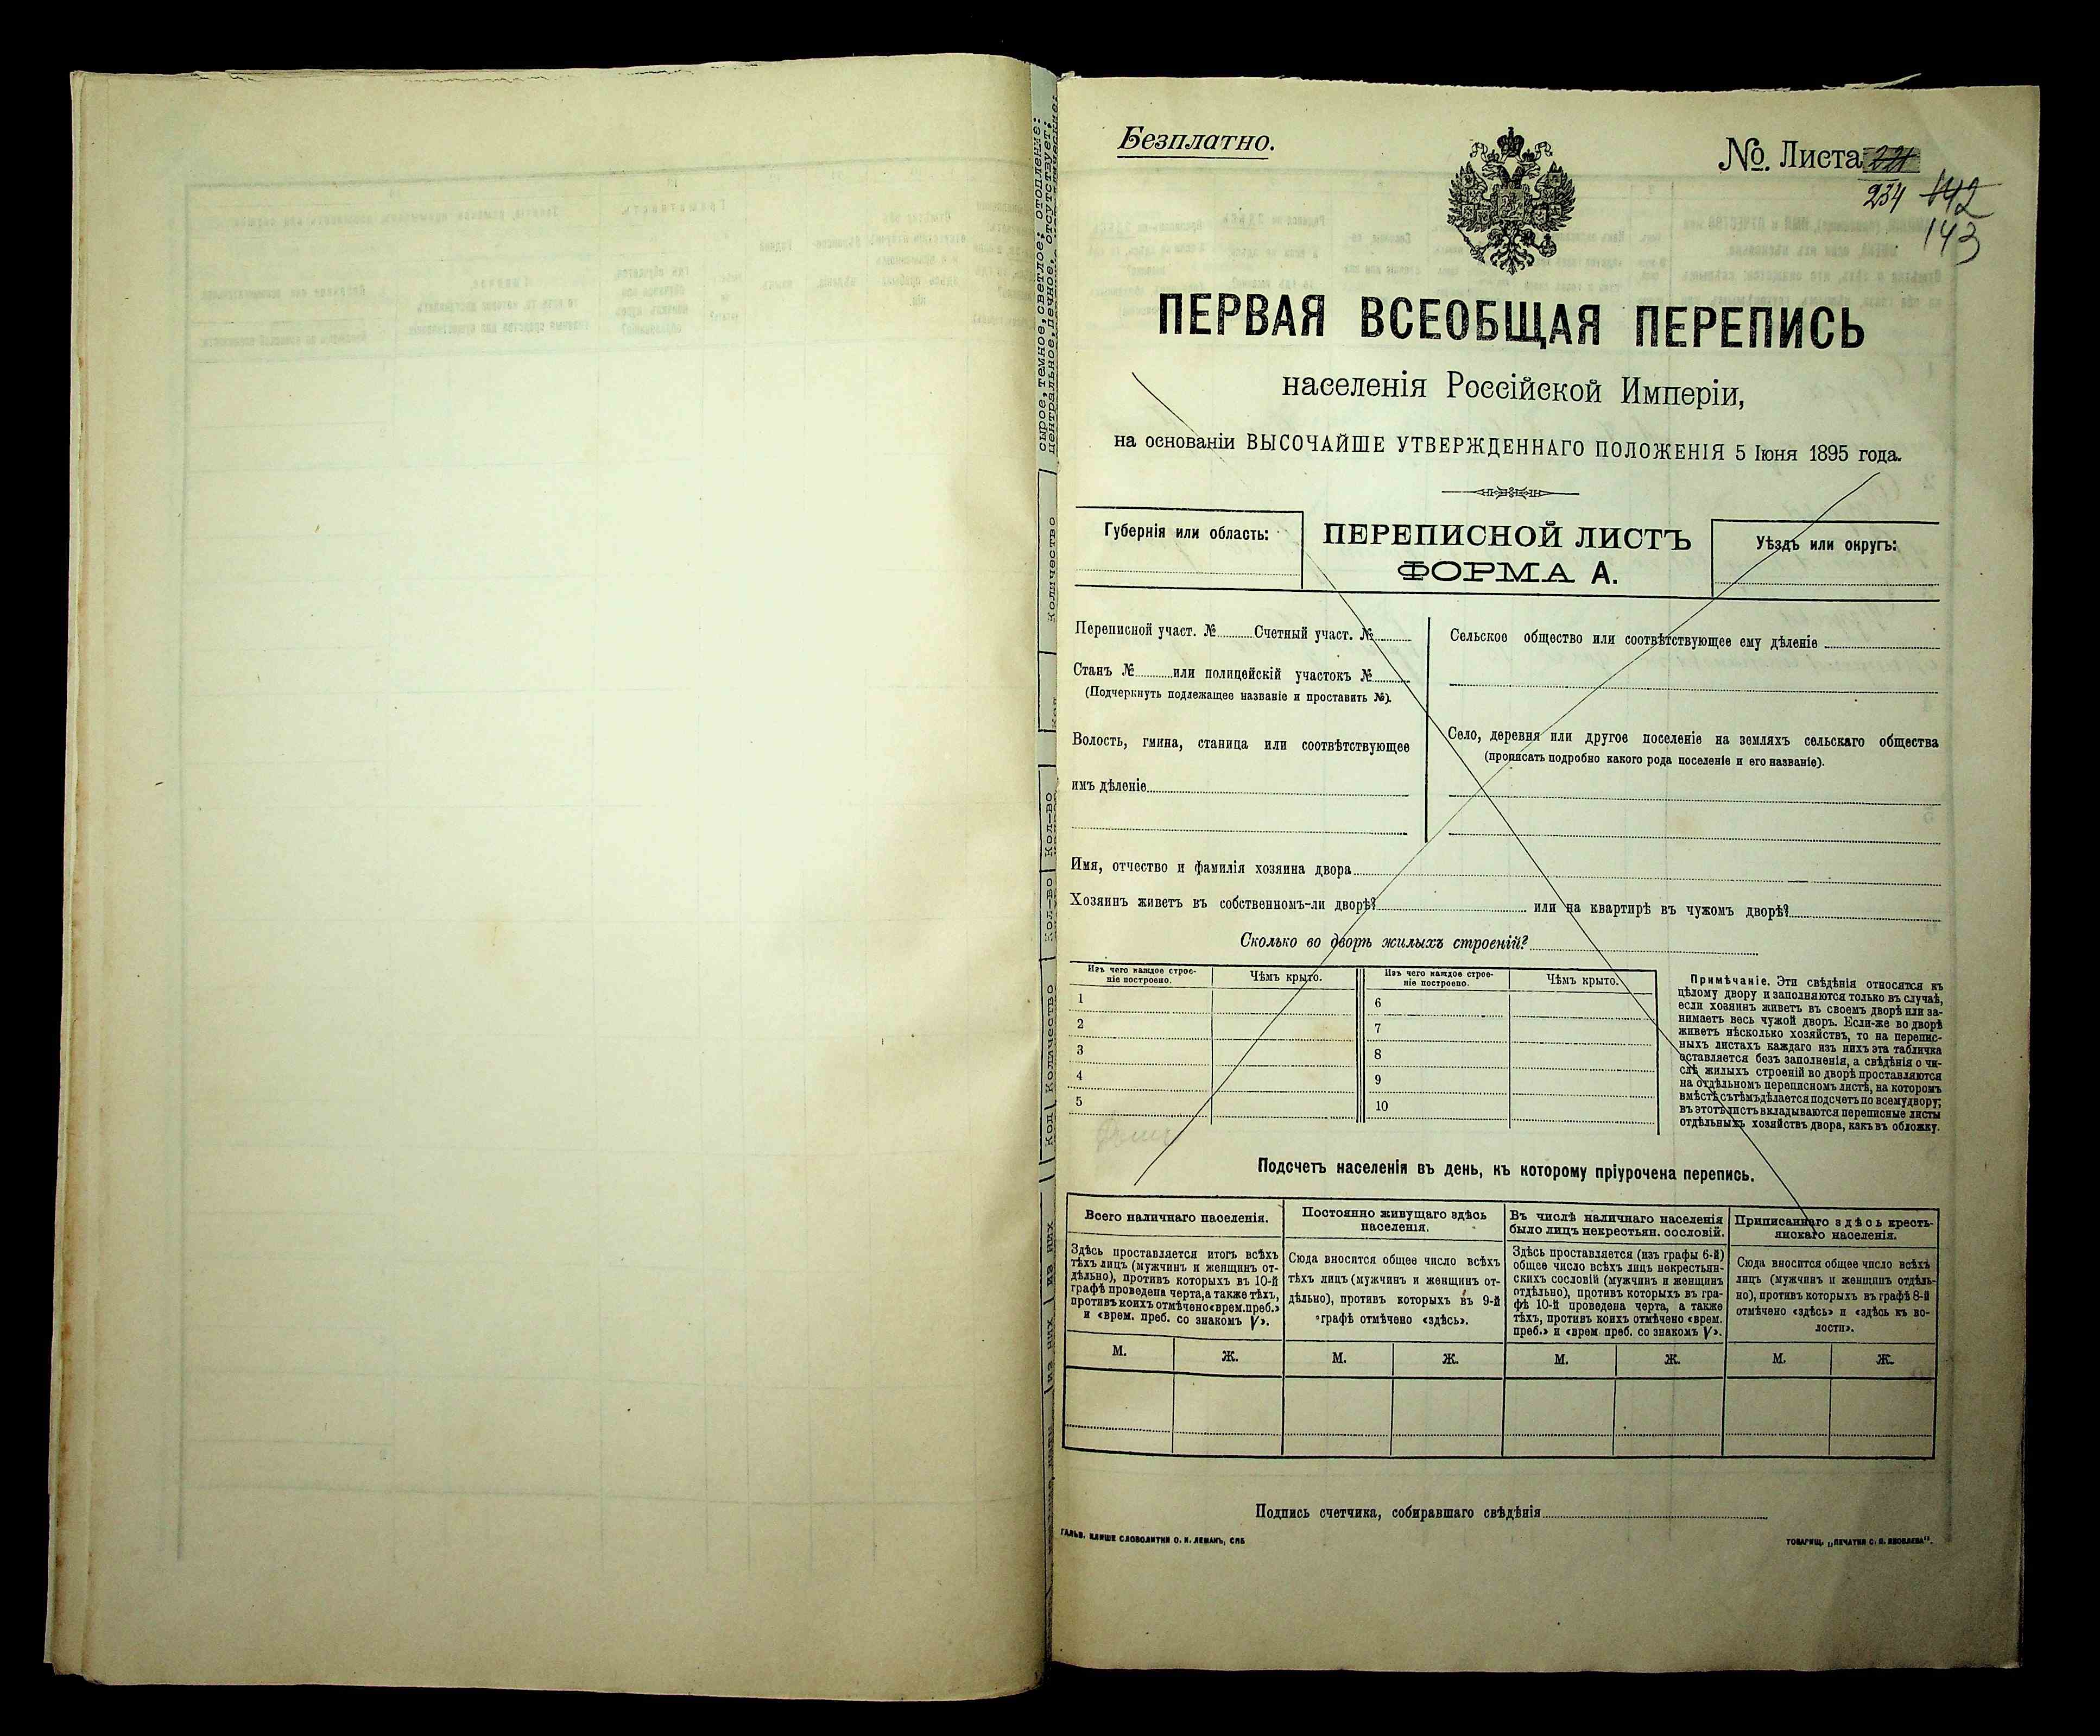 Безплатно.
№. Листа 221
234 142
143
ПЕРВАЯ ВСЕОБЩАЯ ПЕРЕПИСЬ
населенія Россійской Имперіи,
на основаніи ВЫСОЧАЙШЕ УТВЕРЖДЕННАГО ПОЛОЖЕНІЯ 5 Іюня 1895 года.
Губернія или область:
ПЕРЕПИСНОЙ ЛИСТЪ
ФОРМА А.
Уѣздъ или округъ:
Переписной участ. № Счетный участ. №
Станъ № или полицейскій участокъ №
(Подчеркнуть подлежащее названіе и проставить №).
Волость, гмина, станица или соотвѣтствующее
имъ дѣленіе
Сельское общество или соотвѣтствующее ему дѣленіе
Село, деревня или другое поселеніе на земляхъ сельскаго общества
(прописать подробно какого рода поселеніе и его названіе).
Имя, отчество и фамилія хозяина двора
Хозяинъ живетъ въ собственномъ-ли дворѣ? или на квартирѣ въ чужомъ дворѣ?
Сколько во дворѣ жилыхъ строеній?
Изъ чего каждое строе-
ніе построено.
Чѣмъ крыто.
Изъ чего каждое строе-
ніе построено.
Чѣмъ крыто.
1
2
3
4
5
6
7
8
9
10
Примѣчаніе. Эти свѣдѣнія относятся къ
цѣлому двору и заполняются только въ случаѣ,
если хозяинъ живетъ въ своемъ дворѣ или за-
нимаетъ весь чужой дворъ. Если-же во дворѣ
живетъ нѣсколько хозяйствъ, то на перепис-
ныхъ листахъ каждаго изъ нихъ эта табличка
оставляется безъ заполненія, а свѣдѣнія о чи-
слѣ жилыхъ строеній во дворѣ проставляются
на отдѣльномъ переписномъ листѣ, на которомъ
вмѣстѣ съ тѣмъ дѣлается подсчетъ по всему двору;
въ этотъ листъ вкладываются переписные листы
отдѣльныхъ хозяйствъ двора, какъ въ обложку.
Подсчетъ населенія въ день, къ которому пріурочена перепись.
Всего наличнаго населенія.
Здѣсь проставляется итогъ всѣхъ
тѣхъ лицъ (мужчинъ и женщинъ от-
дѣльно), противъ которыхъ въ 10-й
графѣ проведена черта, а также тѣхъ,
противъ коихъ отмѣчено «врем. преб.»
и «врем. преб. со знакомъ V».
Постоянно живущаго здѣсь
населенія.
Сюда вносится общее число всѣхъ
тѣхъ лицъ (мужчинъ и женщинъ от-
дѣльно), противъ которыхъ въ 9-й
графѣ отмѣчено «здѣсь».
Въ числѣ наличнаго населенія
было лицъ некрестьян. сословій.
Здѣсь проставляется (изъ графы 6-й)
общее число всѣхъ лицъ некрестьян-
скихъ сословій (мужчинъ и женщинъ
отдѣльно), противъ которыхъ въ гра-
фѣ 10-й проведена черта, а также
тѣхъ, противъ коихъ отмѣчено «врем.
преб.» и «врем преб. со знакомъ V».
Приписаннаго здѣсь кресть-
янскаго населенія.
Сюда вносится общее число всѣхъ
лицъ (мужчинъ и женщинъ отдѣль-
но), противъ которыхъ въ графѣ 8-й
отмѣчено «здѣсь» и «здѣсь къ во-
лости».
М. Ж. М. Ж. М. Ж. М. Ж.
Подпись счетчика, собиравшаго свѣдѣнія
ГАЛЬВ. КЛИШЕ СЛОВОЛИТНИ О. И. ЛЕМАНЪ, СПБ
ТОВАРИЩ. „ПЕЧАТНЯ С. П. ЯКОВЛЕВА".
сырое, темное, светлое; отопление:
центральное, печное, отсутствует;
Количество
Кол-во
Кол-во
Количество
Код
из них
из них